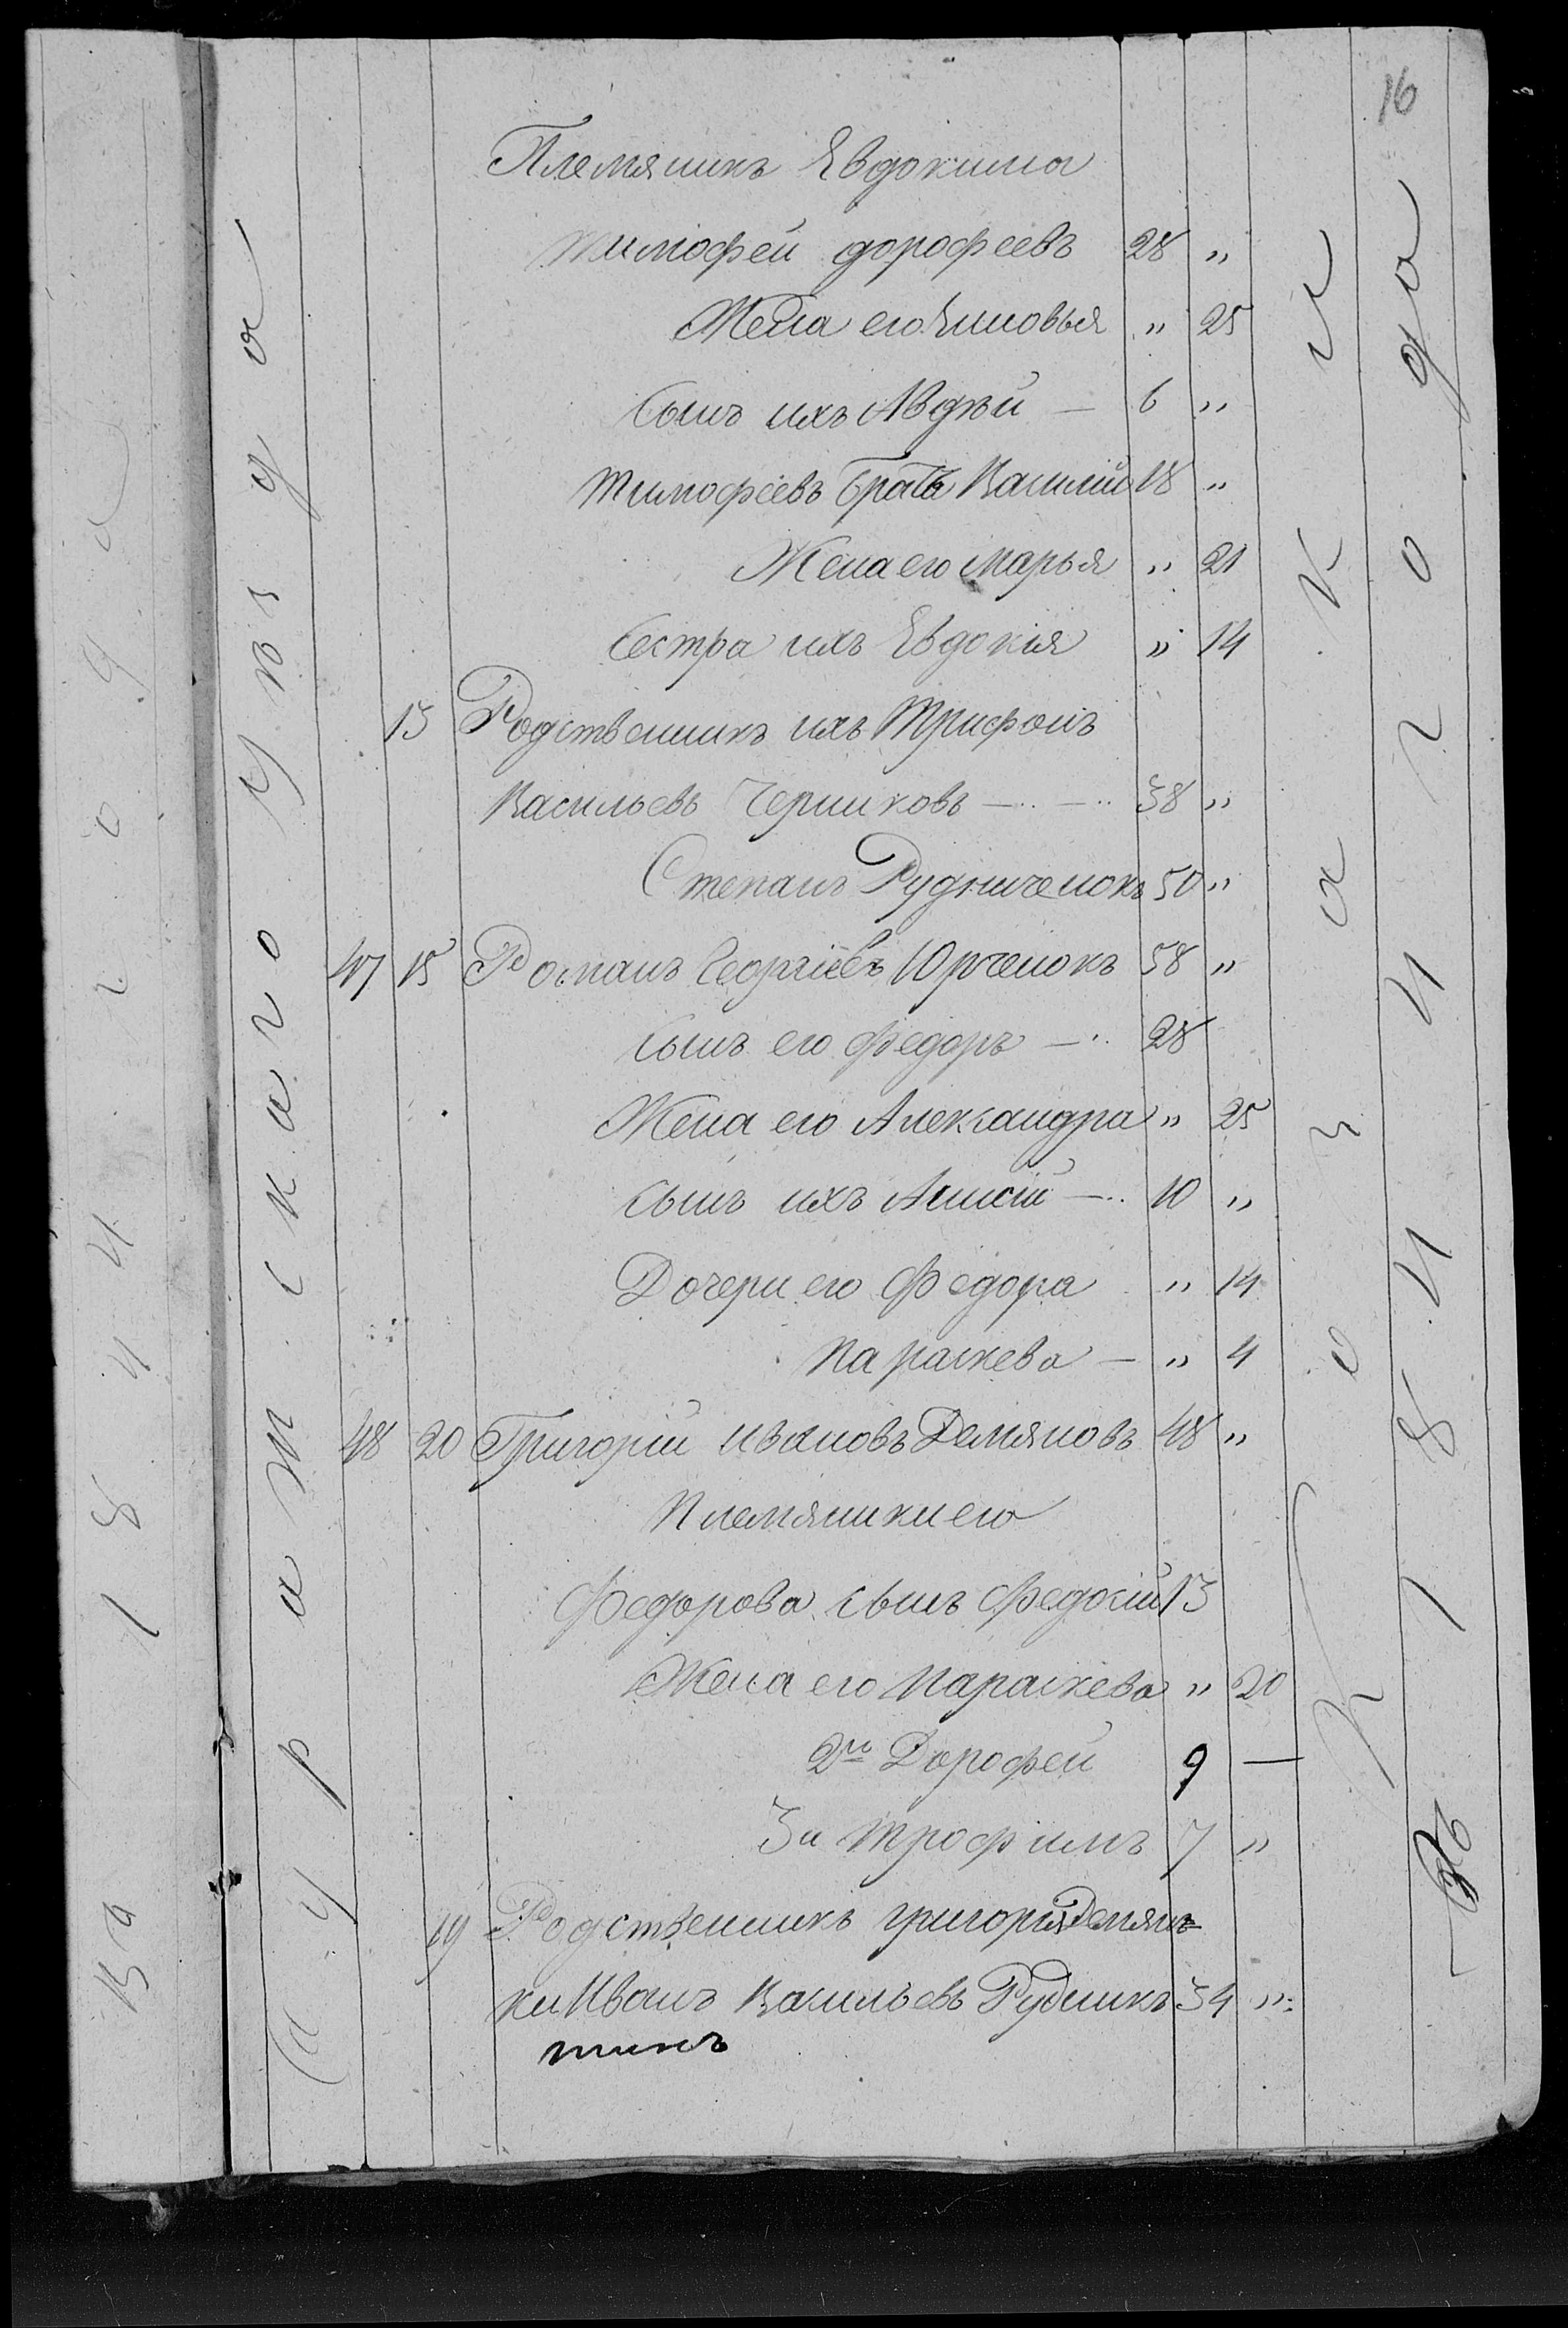 16
Племяникъ Евдокима
тимофей дорофеевъ 28 „
Жена его Зиновья „ 25
Сынъ ихъ Авдѣй — 6 „
тимофеевъ братъ Василий 18 „
Жена его марья „ 21
Сестра ихъ Евдокия „ 14
15 Родственникъ ихъ Трифонъ
Васильевъ Черниковъ — — 38 „
Степанъ Рудниченокъ 50 „
47 15 Романъ Георгіевъ Юрченокъ 58 „
сынъ его Федоръ — 28
Жена его Александра „ 25
сынъ ихъ — 10 „
Дочери его Федора „ 14
Параскева — „ 4
48 20 Григорій ивановъ Демяновъ 48 „
Племяники его
Федорова сынъ Федосій 13
Жена его Параскева „ 20
2го Дорофей 9 —
3й трофимъ 7 „
19 Родственникъ григорія Демян=
ки Иванъ Васильевъ Рудник 34 „
Суражскаго уѣзда
козака
1844 года
1844 года